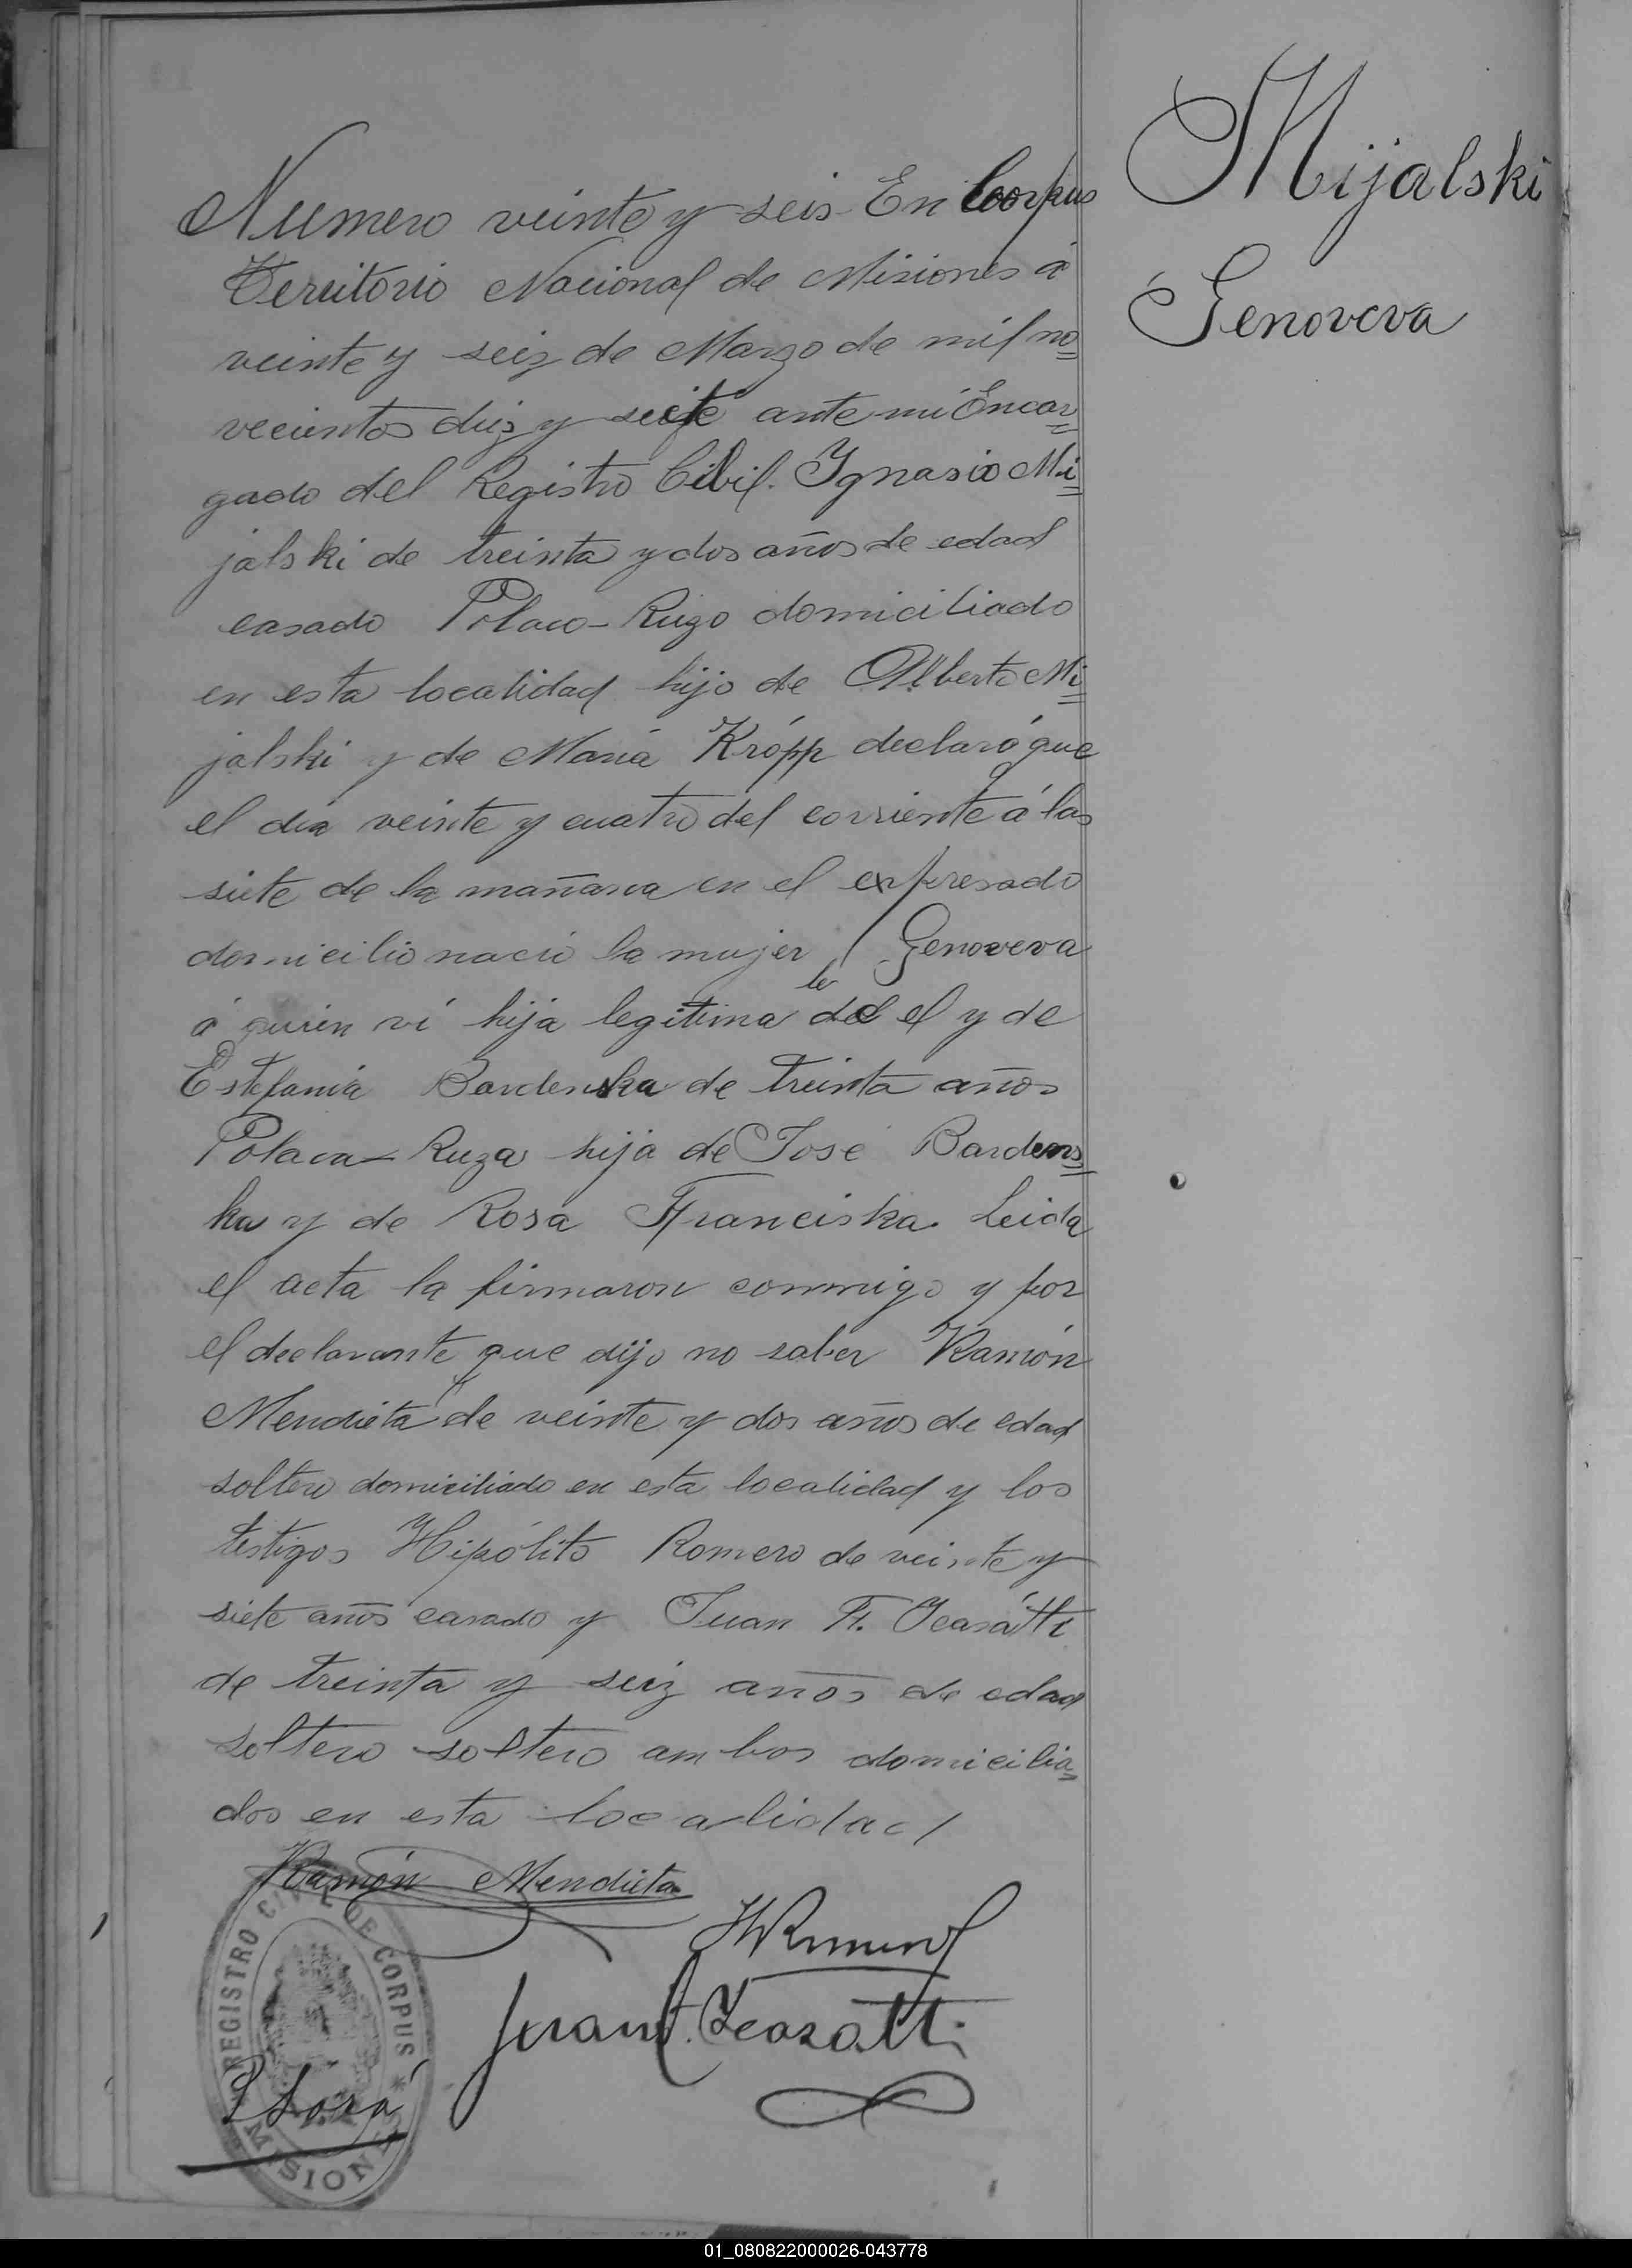 Mijalski
Genoveva
Numero veinte y seis En Corpus
Territorio Nacional de Misiones á
veinte y seiz de Marzo de mil no=
vecientos diez y seite ante mi Encar=
gado del Registro Cibil. Ygnasio Mi=
jalski de treinta y dos años de edad
casado Polaco-Rugo domiciliado
en esta localidad hijo de Alberto Mi=
jalski y de Maria Krópp declaró que
el dia veinte y cuatro del corriente á las
siete de la mañana en el expresado
domicilio nació la mujer Genoveva
á quien ví hija legitima del el y de
Estefania Bardenska de treinta años
Polaca-Ruza hija de José Bardens=
ka y de Rosa Franciska. Leida
el acta la firmaron conmigo y por
el declarante que dijo no saber Ramón
Mendieta de veinte y dos años de edad
soltero domiciliado en esta localidad y los
testigos Hipólito Romero de veinte y
siete años casado y Juan F.
de treinta y seiz años de edad
soltero soltero ambos domicilia=
dos en esta localidad
Ramón Mendieta
HRomero
Juan F.
REGISTRO CIVIL DE CORPUS
MISIONES
01_080822000026-043778